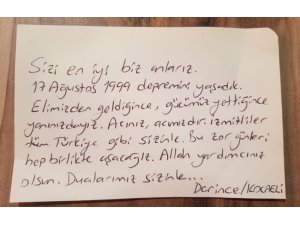 Sizi en iyi biz anlarız.
17 Ağustos 1999 depremini yaşadık.
Elimizden geldiğince, gücümüz yettiğince
yanınızdayız. Acınız, acımızdır. İzmitliler
tüm Türkiye gibi sizinle. Bu zor günleri
hep birlikte aşacağız. Allah yardımcınız
olsun. Dualarımız sizinle...
Derince/KOCAELİ